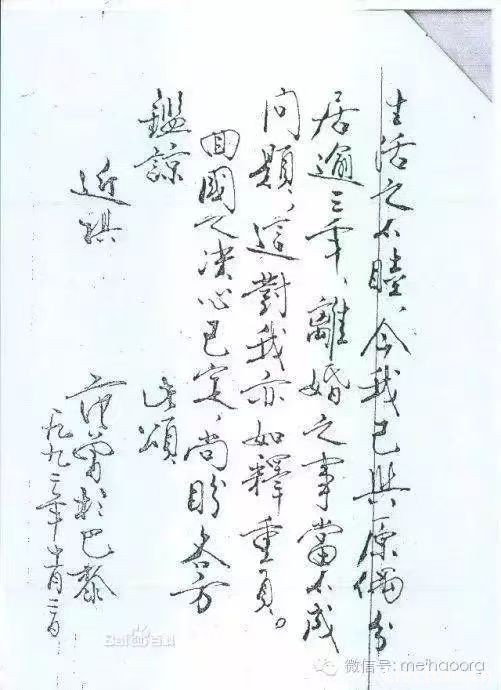 生活之不睦、今我已與原偶分
居逾三年、離婚之事當不成
問題、這對我亦如釋重負。
回國之决心已定、尚盼各方
鑑諒
此頌
近祺
范曾於巴黎
一九九三年十月三日
Bai百科
微信号: meihaoorg